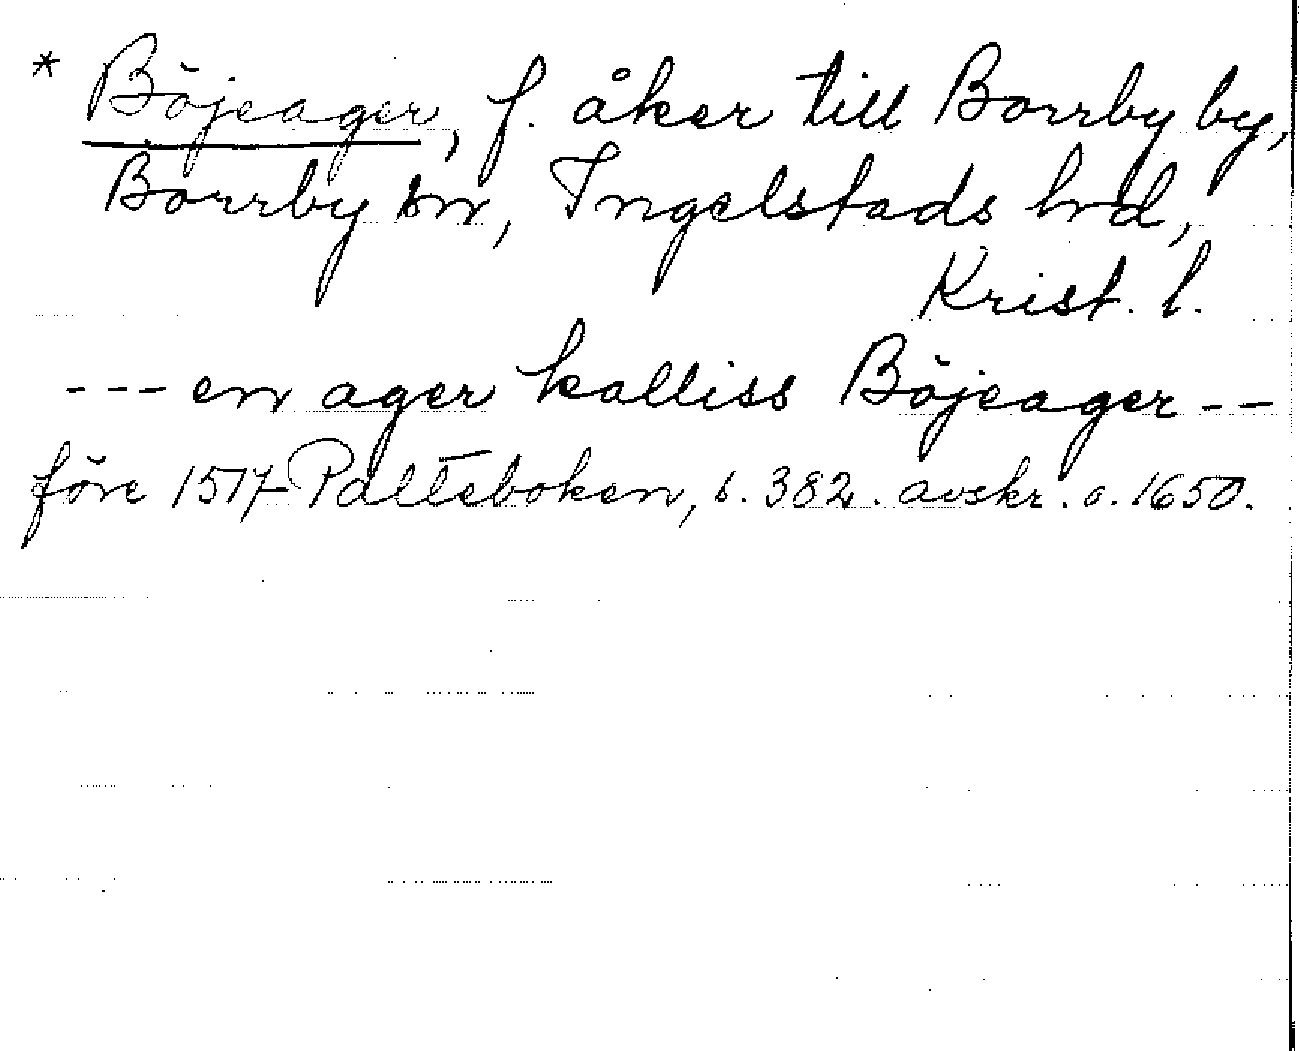 * Böjeager, f. åker till Borrby by,
Borrby sn, Ingelstads hrd,
Krist. l.
--- en ager kalliss Böjeager --
före 1517 Palteboken, s. 382. avskr. o. 1650.